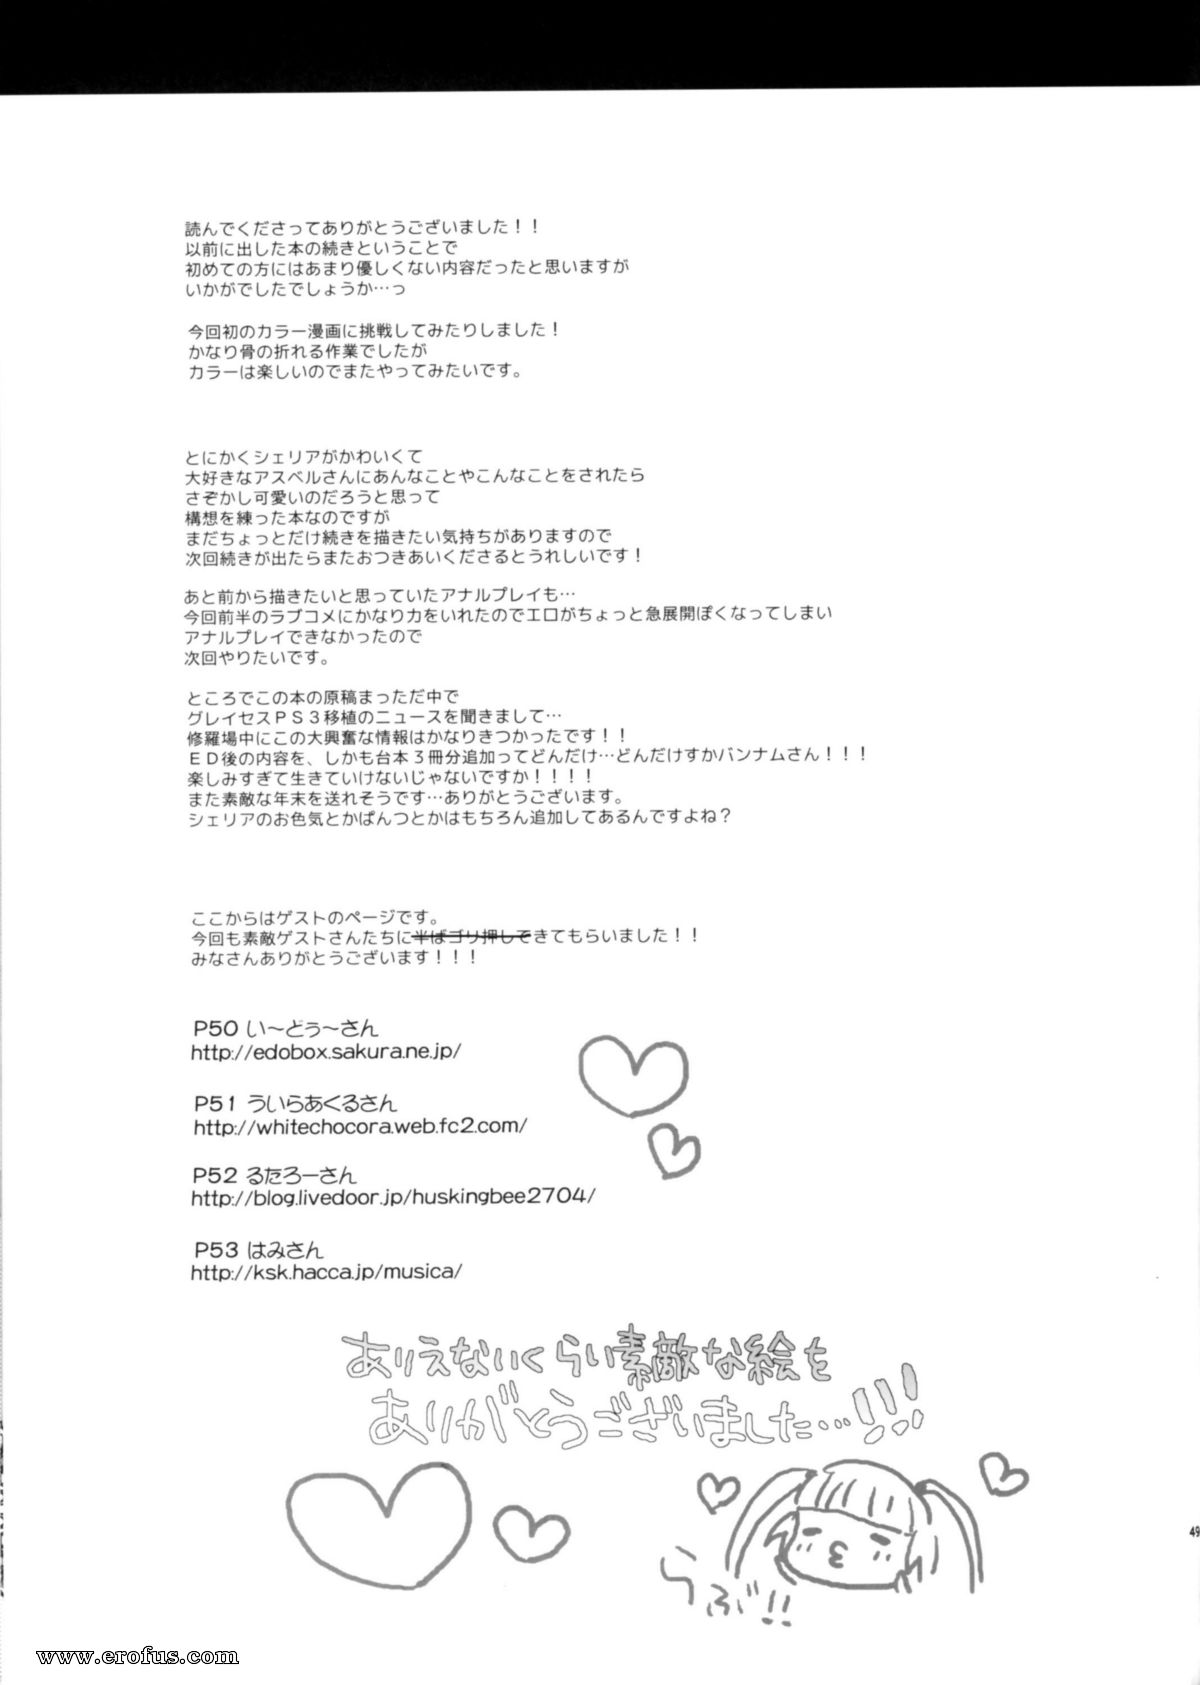 読んでくださってありがとうございました！！
以前に出した本の続きということで
初めての方にはあまり優しくない内容だったと思いますが
いかがでしたでしょうか…っ
今回初のカラー漫画に挑戦してみたりしました！
かなり骨の折れる作業でしたが
カラーは楽しいのでまたやってみたいです。
とにかくシェリアがかわいくて
大好きなアスベルさんにあんなことやこんなことをされたら
さぞかし可愛いのだろうと思って
構想を練った本なのですが
まだちょっとだけ続きを描きたい気持ちがありますので
次回続きが出たらまたおつきあいくださるとうれしいです！
あと前から描きたいと思っていたアナルプレイも…
今回前半のラブコメにかなり力をいれたのでエロがちょっと急展開ぽくなってしまい
アナルプレイできなかったので
次回やりたいです。
ところでこの本の原稿まっただ中で
グレイセスＰＳ３移植のニュースを聞きまして…
修羅場中にこの大興奮な情報はかなりきつかったです！！
ＥＤ後の内容を、しかも台本３冊分追加ってどんだけ…どんだけすかバンナムさん！！！
楽しみすぎて生きていけないじゃないですか！！！！
また素敵な年末を送れそうです…ありがとうございます。
シェリアのお色気とかぱんつとかはもちろん追加してあるんですよね？
ここからはゲストのページです。
今回も素敵ゲストさんたちに半ばゴリ押しできてもらいました！！
みなさんありがとうございます！！！
P50 い～どぅ～さん
http://edobox.sakura.ne.jp/
P51 ういらあくるさん
http://whitechocora.web.fc2.com/
P52 るたろーさん
http://blog.livedoor.jp/huskingbee2704/
P53 はみさん
http://ksk.hacca.jp/musica/
ありえないくらい素敵な絵を
ありがとうございました…!!!
らぶ!!
49
www.erofus.com